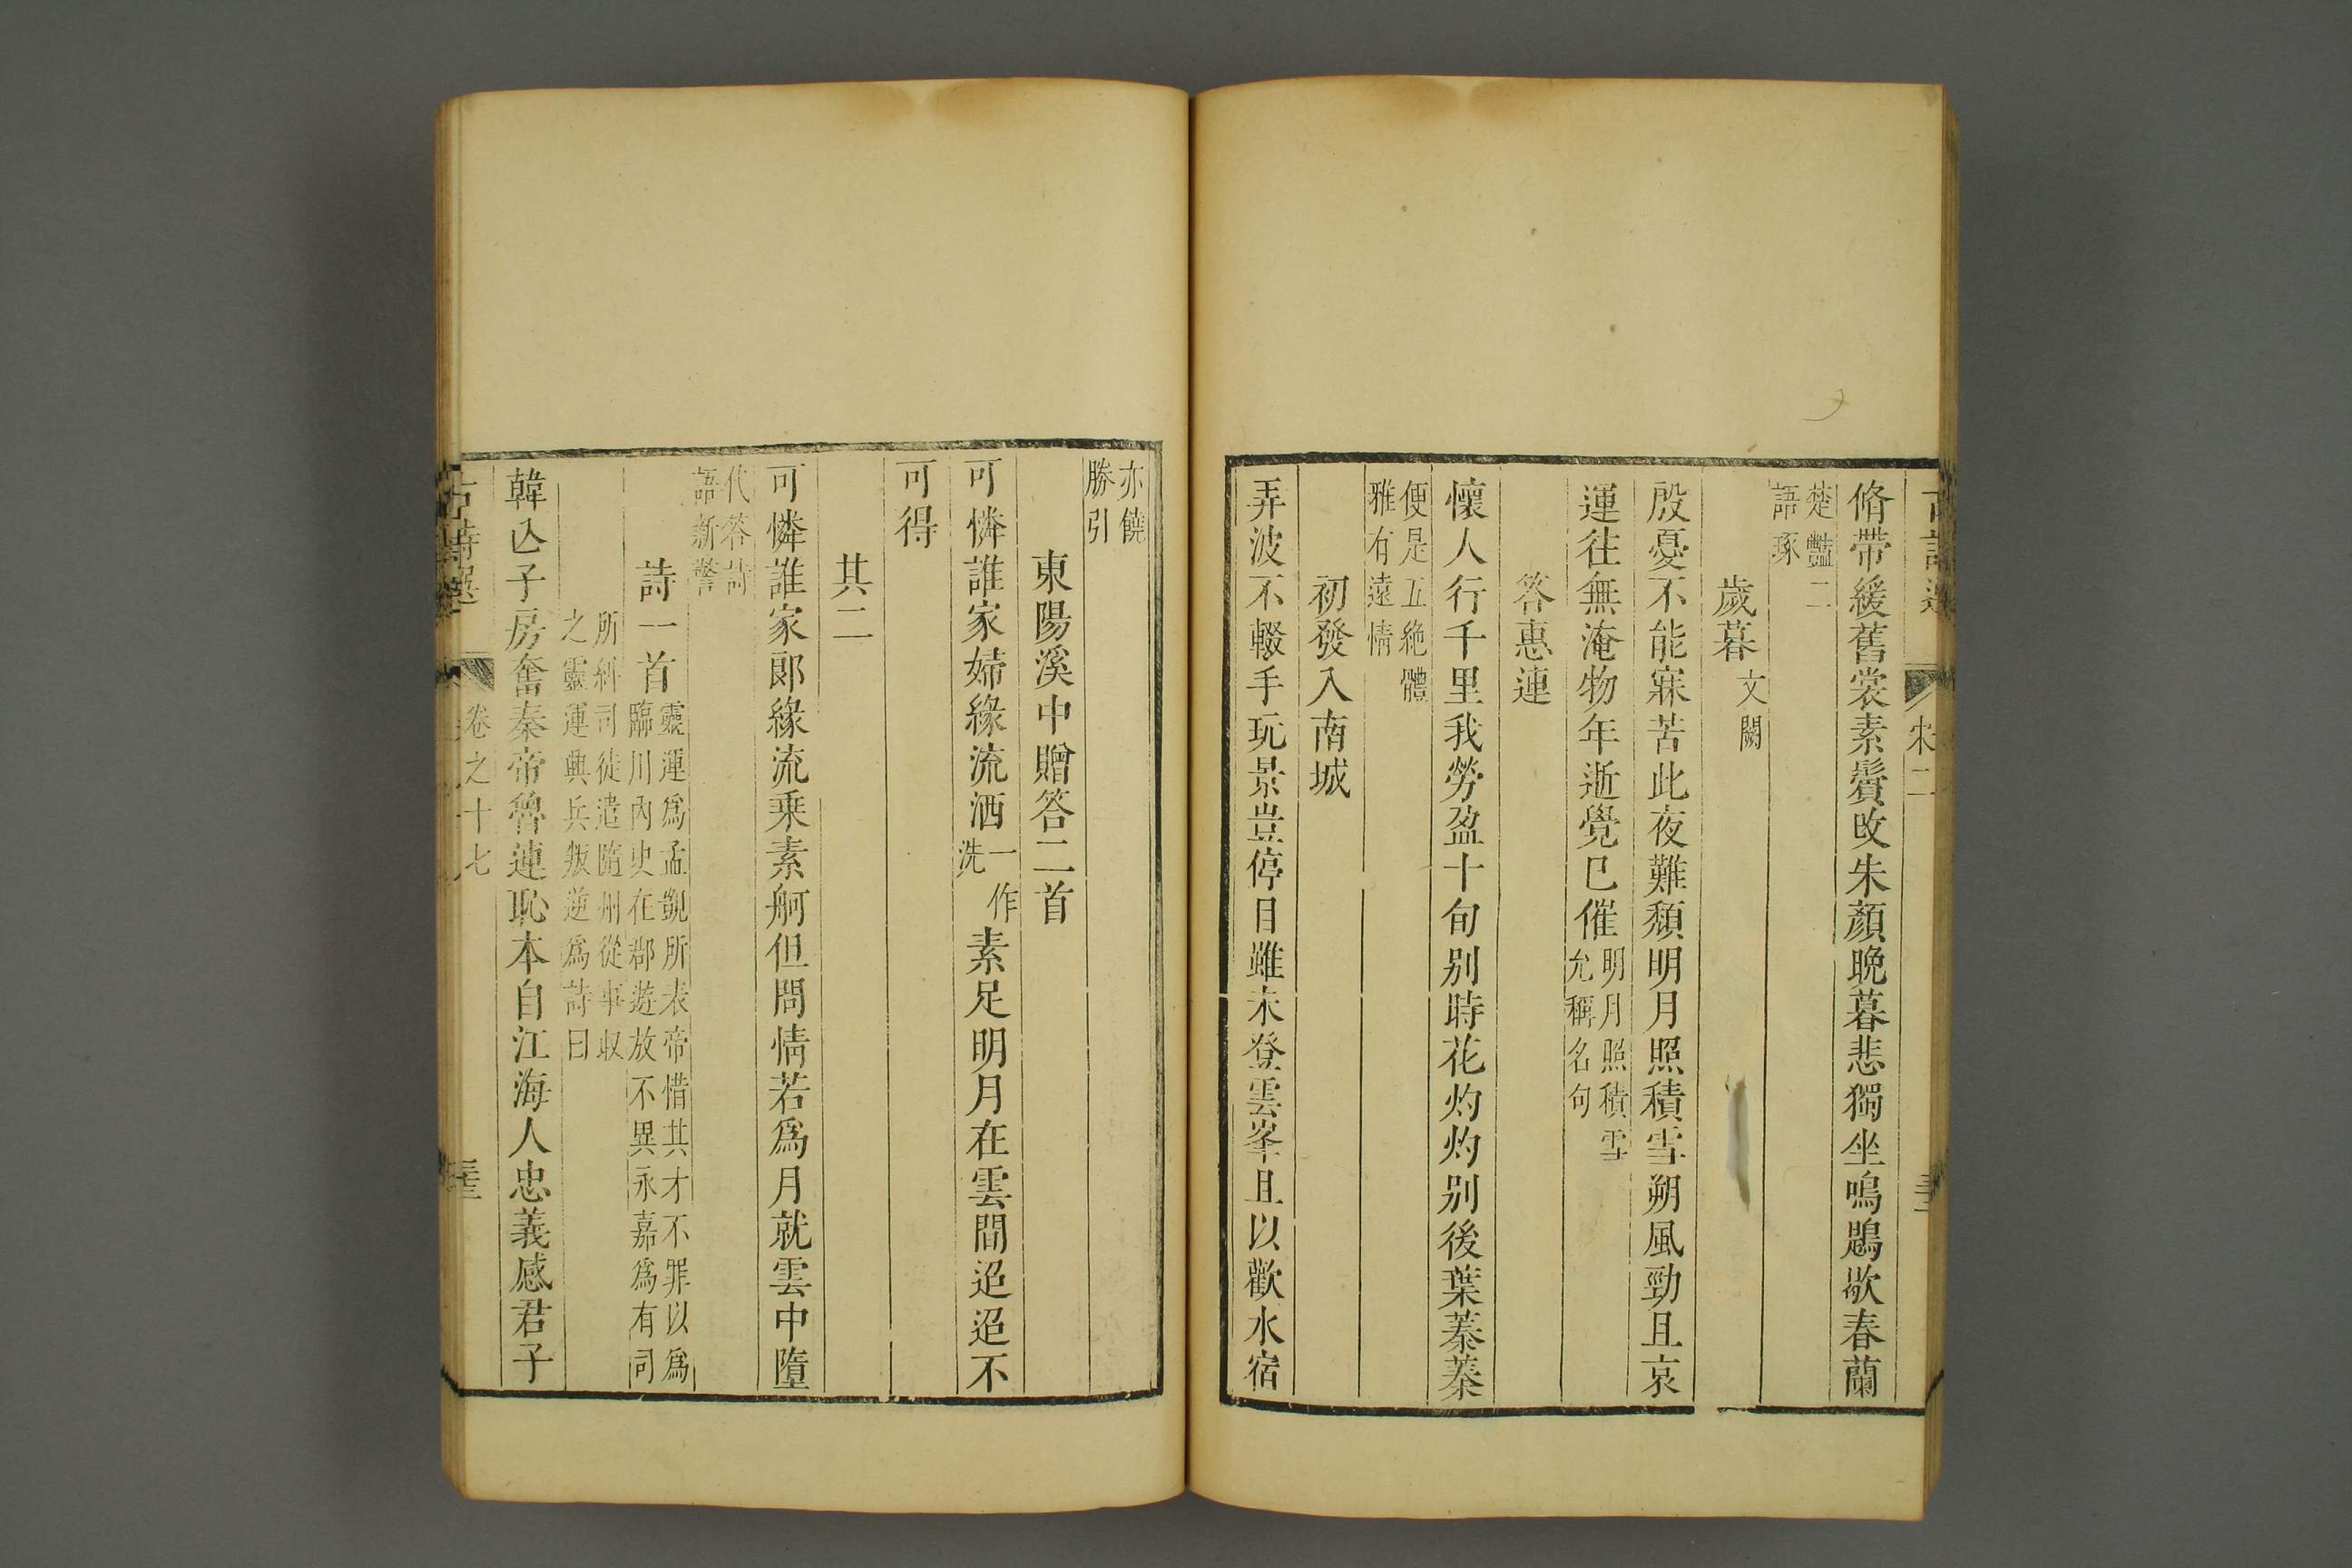 古詩選 宋二
脩帶緩舊裳素鬢改朱顏晚暮悲獨坐鳴鶗歇春蘭
楚豔二
語琢
歲暮文闕
殷憂不能寐苦此夜難頹明月照積雪朔風勁且哀
運往無淹物年逝覺已催明月照積雪
允稱名句
答惠連
懷人行千里我勞盈十旬別時花灼灼別後葉蓁蓁
便是五絶體
雅有遠情
初發入南城
弄波不輟手玩景豈停目雖未登雲峯且以歡水宿
亦饒
勝引
東陽溪中贈答二首
可憐誰家婦緣流洒一作
洗素足明月在雲間迢迢不
可得
其二
可憐誰家郎緣流乗素舸但問情若爲月就雲中墮
代答詩
語新警
詩一首靈運爲孟顗所表帝惜其才不罪以爲
臨川內史在郡遊放不異永嘉爲有司
所糾司徒遣隨州從事収
之靈運興兵叛逆爲詩曰
韓亾子房奮秦帝魯連恥本自江海人忠義感君子
古詩選 卷之十七